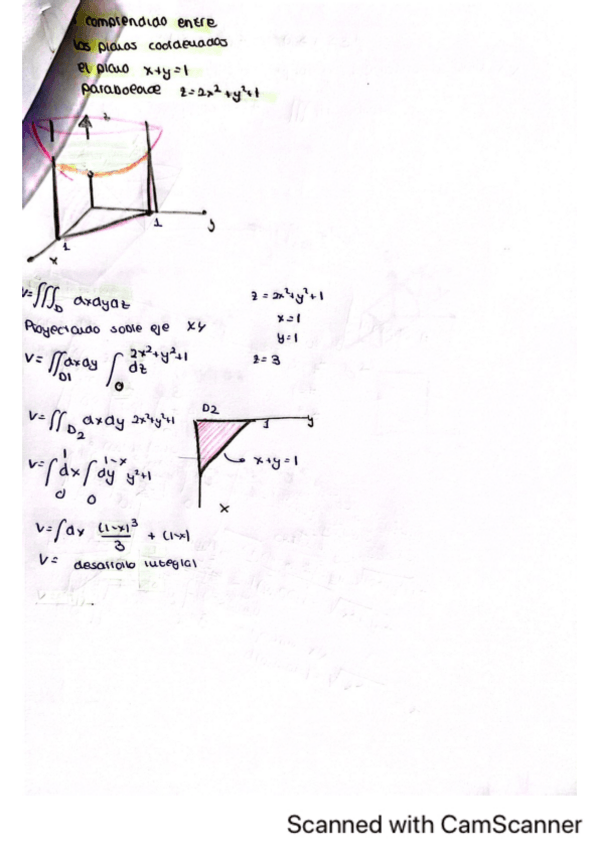 comprendido entre
los planos coordenados
el plano x+y=1
paraboloide z=2x²+y²+1
z
1
y
1
x
V=∭_D dxdydz
z=2x²+y²+1
Proyectando sobre eje XY
x=1
y=1
V=∬_D1 dxdy ∫_0^{2x²+y²+1} dz
z=3
D2
V=∬_D2 dxdy 2x²+y²+1
1
y
V=∫_0^1 dx ∫_0^{1-x} dy y²+1
x+y=1
x
V=∫dx (1-x)³/3 + (1-x)
V= desarrollo integral
Scanned with CamScanner